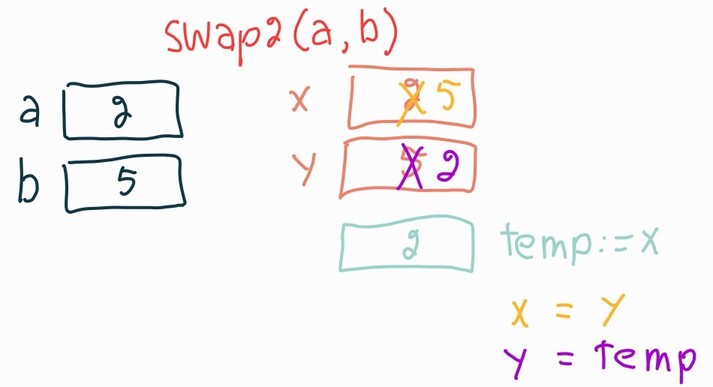 swap2(a,b)
a 2
x 2 5
b 5
y 5 2
2 temp:=x
x = y
y = temp